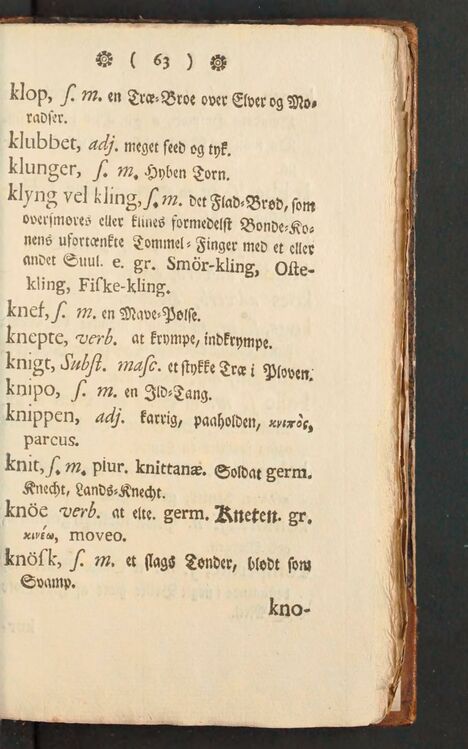 ( 63 )
klop, s. m. en Træ-Broe over Elver og Mo-
radser.
klubbet, adj. meget feed og tyk.
klunger, s. m. Hyben Torn.
klyng vel kling, s. m. det Flad-Brød, som
oversmøres eller klines formedelst Bonde-Ko-
nens ufortænkte Tommel-Finger med et eller
andet Suul. e. gr. Smör-kling, Oste-
kling, Fiske-kling.
knef, s. m. en Mave-Pølse.
knepte, verb. at krympe, indkrympe.
knigt, Subst. masc. et stykke Træ i Ploven.
knipo, s. m. en Ild-Tang.
knippen, adj. karrig, paaholden, κνιπὸς,
parcus.
knit, s. m. plur. knittanæ. Soldat germ.
Knecht, Lands-Knecht.
knöe verb. at elte. germ. Kneten. gr.
κινέω, moveo.
knösk, s. m. et slags Tønder, blødt som
Svamp.
kno-